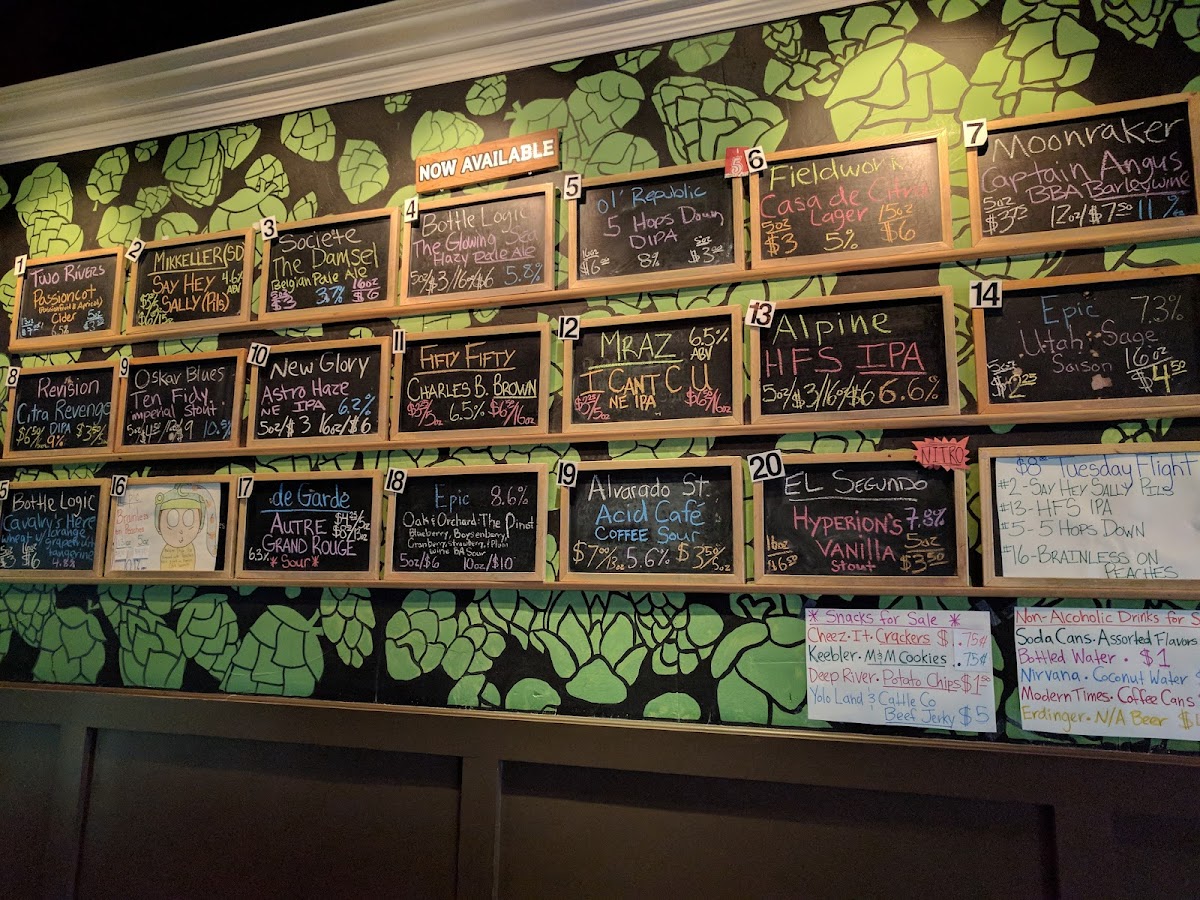 NOW AVAILABLE
1
TWO RIVERS
PASSIONCOT
Cider
6.5%
2
MIKKELLER (SD
SAY HEY
SALLY (Pils)
4.6%
ABV
3
Societe
The Damsel
Belgian Pale Ale
5oz
$3
16oz
$6
4
Bottle Logic
The Glowing Sea
Hazy Pale Ale
5oz/$3/16oz/$6 5.8%
5
Ol' Republic
5 Hops Down
DIPA
16oz
8%
5oz
5
6
Fieldwork
Casa de Citra
Lager
5oz
$3
5%
15oz
$6
7
Moonraker
Captain Angus
BBA Barleywine
5oz
12oz/$7.50 11%
8
Revision
Citra Revenge
DIPA
9%
9
Oskar Blues
Ten Fidy
imperial stout
10
New Glory
Astro Haze
NE IPA 6.2%
5oz/$3 16oz/$6
11
FIFTY FIFTY
CHARLES B. BROWN
6.5%
12
MRAZ
6.5%
ABV
I CANT C U
NE IPA
13
Alpine
HFS IPA
5oz/$3/16oz/$6 6.6%
14
Epic 7.3%
Utah Sage
Saison
5oz
$2.25
16oz
$4.50
5
Bottle Logic
Cavalry's Here
wheat w/orange
grapefruit
tangerine
4.8%
16
Brainless
on
Peaches
17
de Garde
AUTRE
GRAND ROUGE
6.3%
*Sour*
18
Epic 8.6%
Oak & Orchard: The Pinot
Blueberry, Boysenberry,
Cranberry, Strawberry, & Plum
wine BA Sour
5oz/$6 10oz/$10
19
Alvarado St.
Acid Café
COFFEE SOUR
5.6%
20
NITRO
EL SEGUNDO
HYPERION'S
VANILLA
Stout
7.8%
5oz
$3.50
16oz
$8 Tuesday Flight
#2-SAY HEY SALLY PILS
#13-HFS IPA
#5-5 HOPS DOWN
#16-BRAINLESS ON
PEACHES
* Snacks for Sale *
Cheez-It Crackers $ .75¢
Keebler·M&M Cookies ..75¢
Deep River·Potato Chips $1.50
Yolo Land & Cattle Co
Beef Jerky $5
Non-Alcoholic Drinks for S
Soda Cans·Assorted Flavors
Bottled Water · $1
Nirvana·Coconut Water $
Modern Times·Coffee Cans
Erdinger·N/A Beer $